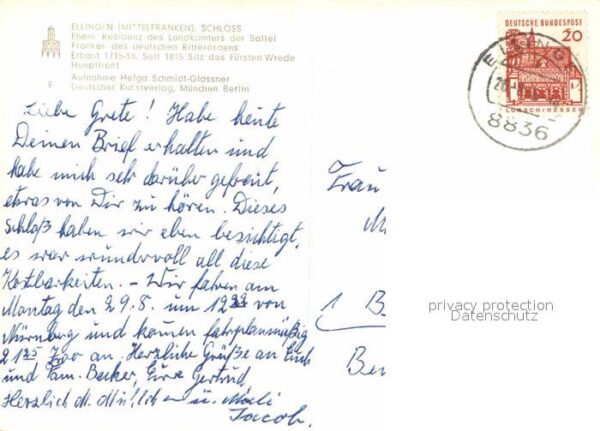 ELLINGEN (MITTELFRANKEN), SCHLOSS
Ehem. Residenz des Landkomturs der Ballei
Franken des deutschen Ritterordens
Erbaut 1715-18. Seit 1815 Sitz des Fürsten Wrede
Hauptfront
Aufnahme Helga Schmidt-Glassner
9 Deutscher Kunstverlag, München Berlin
DEUTSCHE BUNDESPOST
20
LORSCH/HESSEN
8836
Liebe Grete! Habe heute
Deinen Brief erhalten und
habe mich sehr darüber gefreut,
etwas von Dir zu hören. Dieses
Schloß haben wir eben besichtigt,
es war wundervoll all diese
Kostbarkeiten. – Wir fahren am
Montag den 29.8. um 12 von
Nürnberg und kommen fahrplanmäßig
21 Zoo an. Herzliche Grüße an Euch
und Fam. Becker, Eure Gertrud,
Herzlich
Jacob.
Frau
M
1 B
Ber
privacy protection
Datenschutz